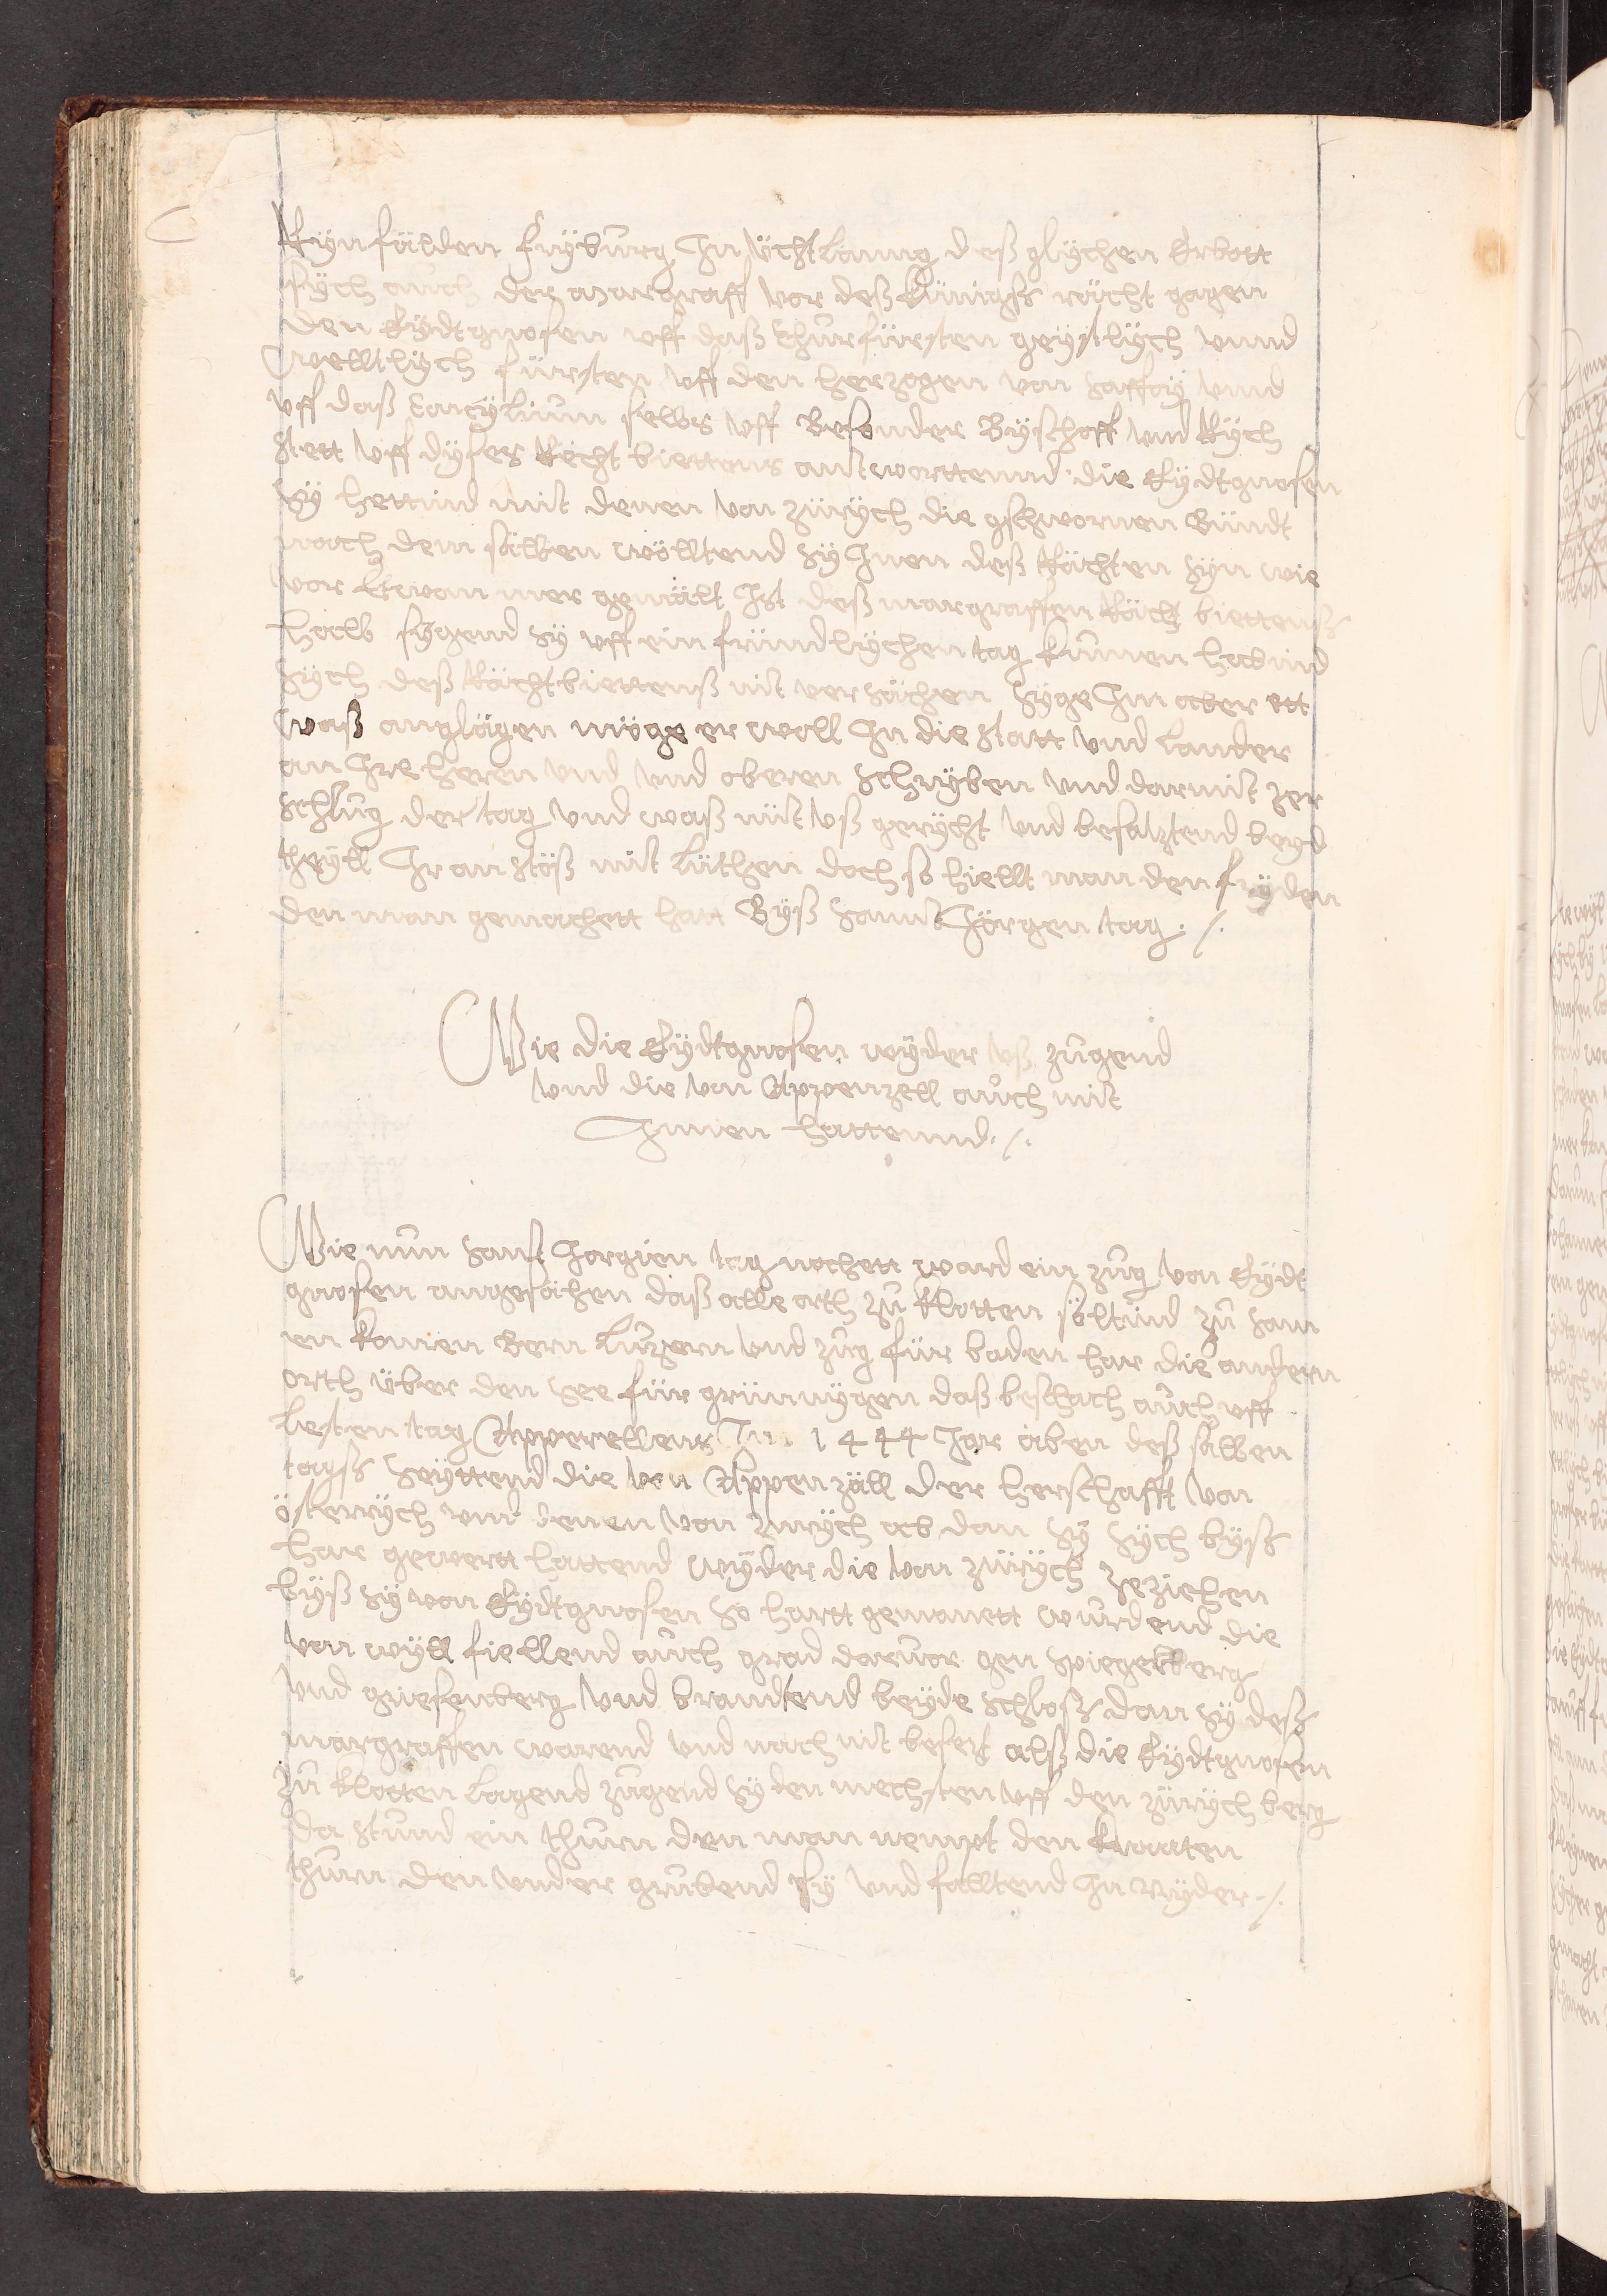 Rÿnfälden frÿburg Jn üchtlanng deß glÿchen Erbott
sÿch auch der margraff vor deß künigß rächt gagen
den Eÿdtgnosen uff daß Churfürsten geÿstlÿch unnd
welltlÿch fürsten uff den herzogen von saffoÿ unnd
uff daß Concÿlium selbs uff Besonder Bÿschoff und Rÿch
stett uff dÿses Rächt biettens antworttennd die Eÿdtgnosen
sÿ hettind mit denen von zürÿch die gschwornen Bündt
nach dem sälben wölltend sÿ Jnen deß Rächten sÿn wie
vor Etwan mer gemält Jst deß margraffen Rächt biettenß
halb sÿgend sÿ uff ein fründlÿchen tag kumen habind
sÿch deß Rächtbiettenß nit versächen sÿge Jm aber ett
waß anglägen möge er woll Jn die statt und länder
an Jre heren und und oberen schrÿben und darmit zer
schlug der tag und waß nüt uß gerÿcht und besatztend beÿd
theÿll Jr an stöß mit lüthen doch so hiellt man den frÿden
den man gemachett hatt Bÿß sannt Jörgen tag ./.

Wie die Eÿdtgnosen wÿder uß zugend
und die von Appenzell auch mit
Jnnen hattennd ./.

Wie nun sant Jorgien tag nochett ward ein zug von Eÿdt
gnosen angesächen daß alle orth zu klotten söltind zu sam
en komen Bern luzern und zug für baden har die andern
orth über den see für grünnÿgen daß beschach auch uff
lesten tag Apperellens Jm 1444 Jar äben deß sälben
tagß seÿttend die von Appenzäll der herschafft von
österrÿch und denen von zürÿch ab dan sÿ sÿch bÿß
har gewert hattend wÿder die von zürÿch zeziehen
bÿß sÿ von Eÿdtgnosen so hartt gemanett wurdend die
von wÿll fiellend auch grad daruor gen spiegelberg
und griesenberg und brandtend beÿde schloß dan sÿ deß
margraffen warend und nach nit besetzt alß die Eÿdtgnosen
zu klotten lagend zugend sÿ den nechsten uff den zürÿch berg
da stund ein thurn den man nempt den kratten
thurn den under grubend sÿ und falltend Jn nÿder ./.